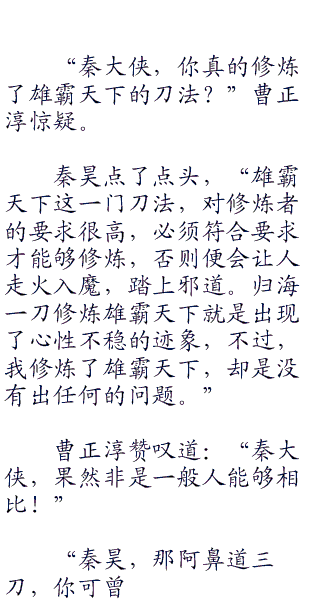 “秦大侠，你真的修炼
了雄霸天下的刀法？”曹正
淳惊疑。
秦昊点了点头，“雄霸
天下这一门刀法，对修炼者
的要求很高，必须符合要求
才能够修炼，否则便会让人
走火入魔，踏上邪道。归海
一刀修炼雄霸天下就是出现
了心性不稳的迹象，不过，
我修炼了雄霸天下，却是没
有出任何的问题。”
曹正淳赞叹道：“秦大
侠，果然非是一般人能够相
比！”
“秦昊，那阿鼻道三
刀，你可曾